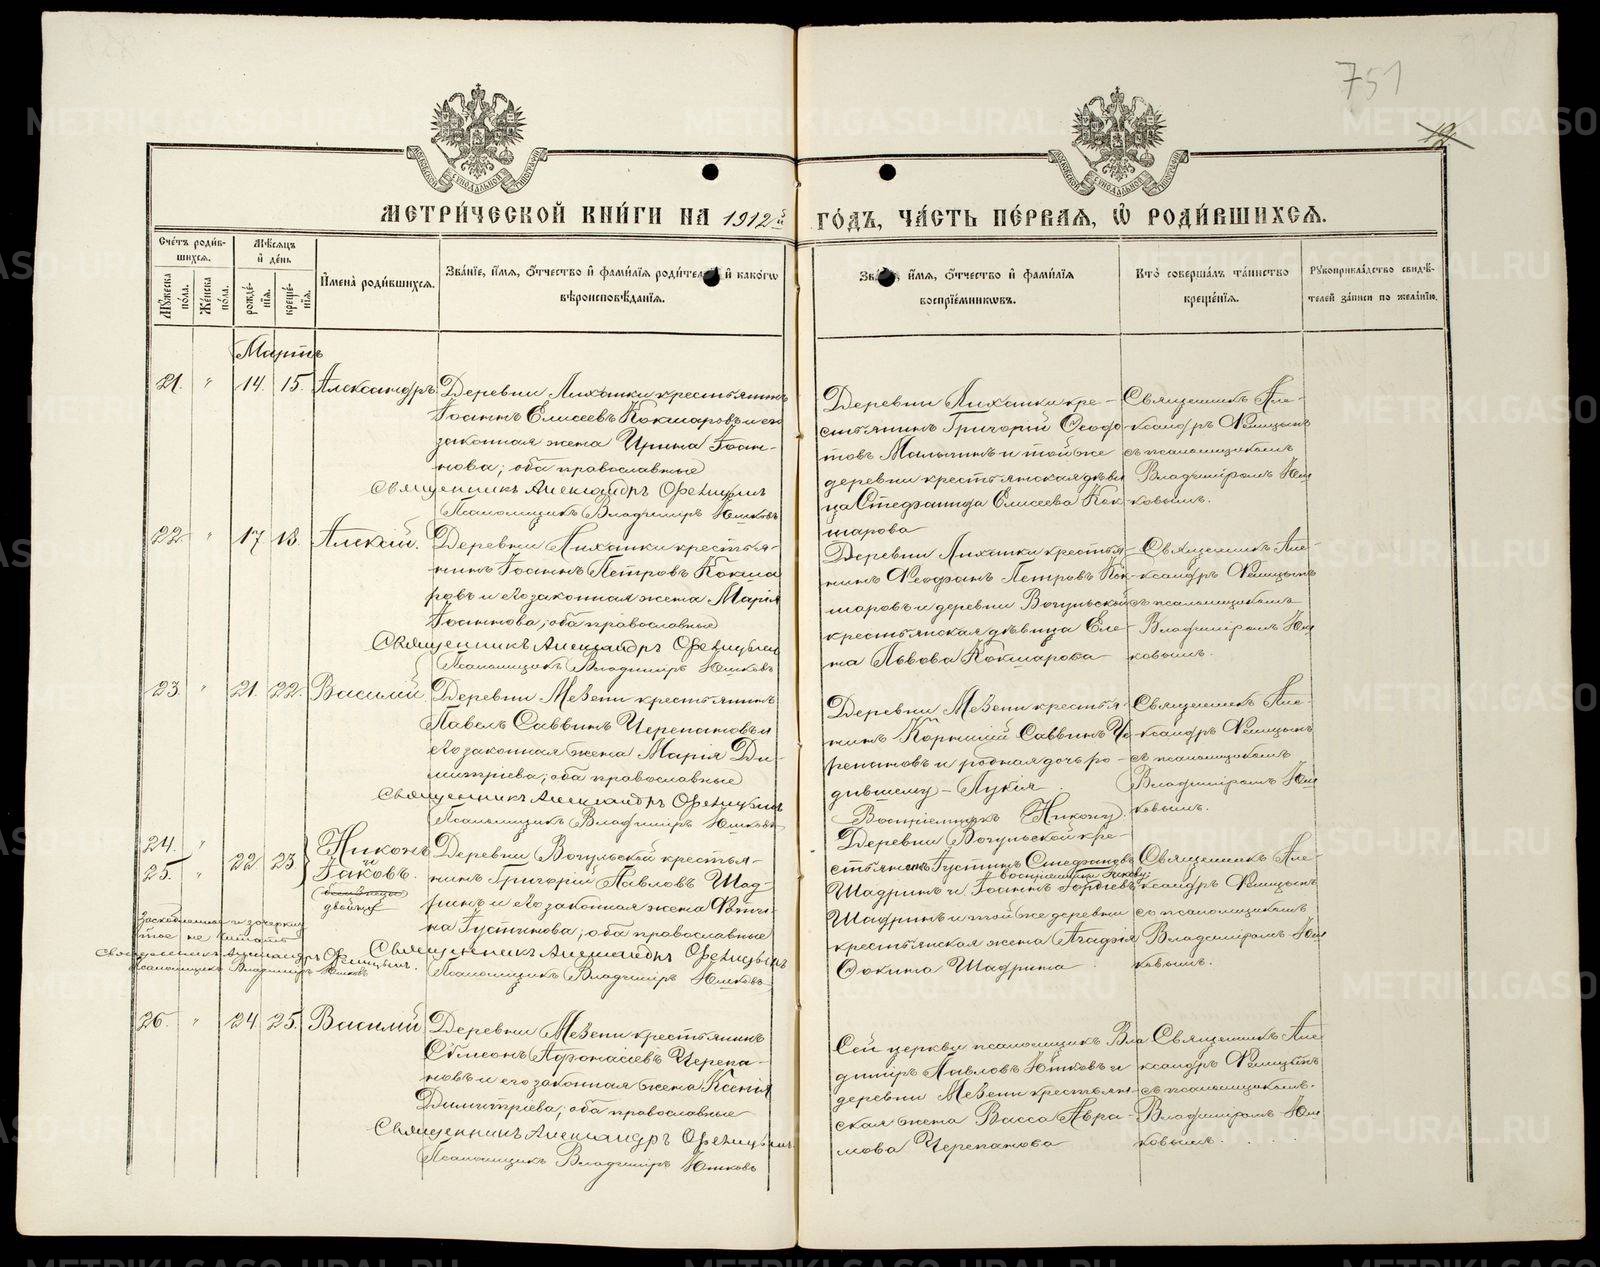 751
19
МЕТРИ́ЧЕСКОЙ КНИ́ГИ НА 1912й ГО́ДЪ, ЧА́СТЬ ПЕ́РВАЯ, Ѡ҆ РОДИ́ВШИХСЯ.
Сче́тъ роди́вшихся.
Мѣ́сяцъ и҆ де́нь
Мꙋ́жеска по́ла.
Же́нска по́ла.
рожде́нїѧ.
креще́нїѧ.
И҆мена̀ роди́вшихсѧ.
Зва́нїе, и҆́мѧ, о҆́тчество и҆ фами́лїѧ роди́телей, и҆ како́гѡ вѣроисповѣ́данїѧ.
Зва́нїе, и҆́мѧ, о҆́тчество и҆ фами́лїѧ воспрїе́мникѡвъ.
Кто̀ соверша́лъ та́инство креще́нїѧ.
Рꙋкоприкла́дство свидѣ́телей за́писи по жела́нїю.
Мартъ
21. " 14. 15. Александръ.
Деревни Лиханки крестьянинъ
Іоаннъ Елисеевъ Кокшаровъ и его
законная жена Ирина Іоан-
нова; оба православные
Священникъ Александръ Фелицынъ
Псаломщикъ Владиміръ Юшковъ
Деревни Лиханки кре-
стьянинъ Григорій Ѳеодо
товъ Малыгинъ и той же
деревни крестьянская дѣви
ца Стефанида Елисеева Кок-
шарова
Священникъ Але-
ксандръ Фелицынъ
съ псаломщикомъ
Владиміромъ Юш
ковымъ.
22. " 17 18. Алексій.
Деревни Лиханки крестья-
нинъ Іоаннъ Петровъ Кокша
ровъ и его законная жена Марія
Іоаннова; оба православные
Священникъ Александръ Фелицынъ
Псаломщикъ Владиміръ Юшковъ
Деревни Лиханки крестья-
нинъ Ѳеофанъ Петровъ Кок-
шаровъ и деревни Вогульской
крестьянская дѣвица Еле-
на Львова Кокшарова
Священникъ Але-
ксандръ Фелицынъ
съ псаломщикомъ
Владиміромъ Юш
ковымъ.
23. " 21. 22. Василій
Деревни Мезени крестьянинъ
Павелъ Саввинъ Черепановъ и
его законная жена Марія Ди-
митріева; оба православные
Священникъ Александръ Фелицынъ
Псаломщикъ Владиміръ Юшковъ
Деревни Мезени крестья-
нинъ Корнилій Саввинъ Че
репановъ и родная дочь ро-
дившему - Лукія.
Священникъ Але-
ксандръ Фелицынъ
съ псаломщикомъ
Владиміромъ Юш
ковымъ.
24. "
25. " 22. 23. Никонъ
Іаковъ.
двойни
Деревни Вогульской крестья-
нинъ Григорій Павловъ Шад-
ринъ и его законная жена Фоти-
на Іустинова; оба православные
Священникъ Александръ Фелицынъ
Псаломщикъ Владиміръ Юшковъ
Воспріемникъ Никону
Деревни Вогульской кре-
стьянинъ Іустинъ Стефановъ
воспріемникъ Іакову:
Шадринъ и Іоаннъ Гордіевъ
Шадринъ и той же деревни
крестьянская жена Агафія
Фокина Шадрина
Священникъ Але-
ксандръ Фелицынъ
со псаломщикомъ
Владиміромъ Юш
ковымъ.
Заскобленное и зачеркну
тое не читать
Священникъ Александръ Фелицынъ.
Псаломщикъ Владиміръ Юшковъ
26. " 24 25. Василій
Деревни Мезени крестьянинъ
Сѵмеонъ Афонасіевъ Черепа-
новъ и его законная жена Ксенія
Димитріева; оба православные
Священникъ Александръ Фелицынъ
Псаломщикъ Владиміръ Юшковъ
Сей церкви псаломщикъ Вла
диміръ Павловъ Юшковъ и
деревни Мезени крестьян-
ская жена Васса Авра-
мова Черепанова
Священникъ Але
ксандръ Фелицынъ
съ псаломщикомъ.
Владиміромъ Юш
ковымъ.
METRIKI.GASO-URAL.RU